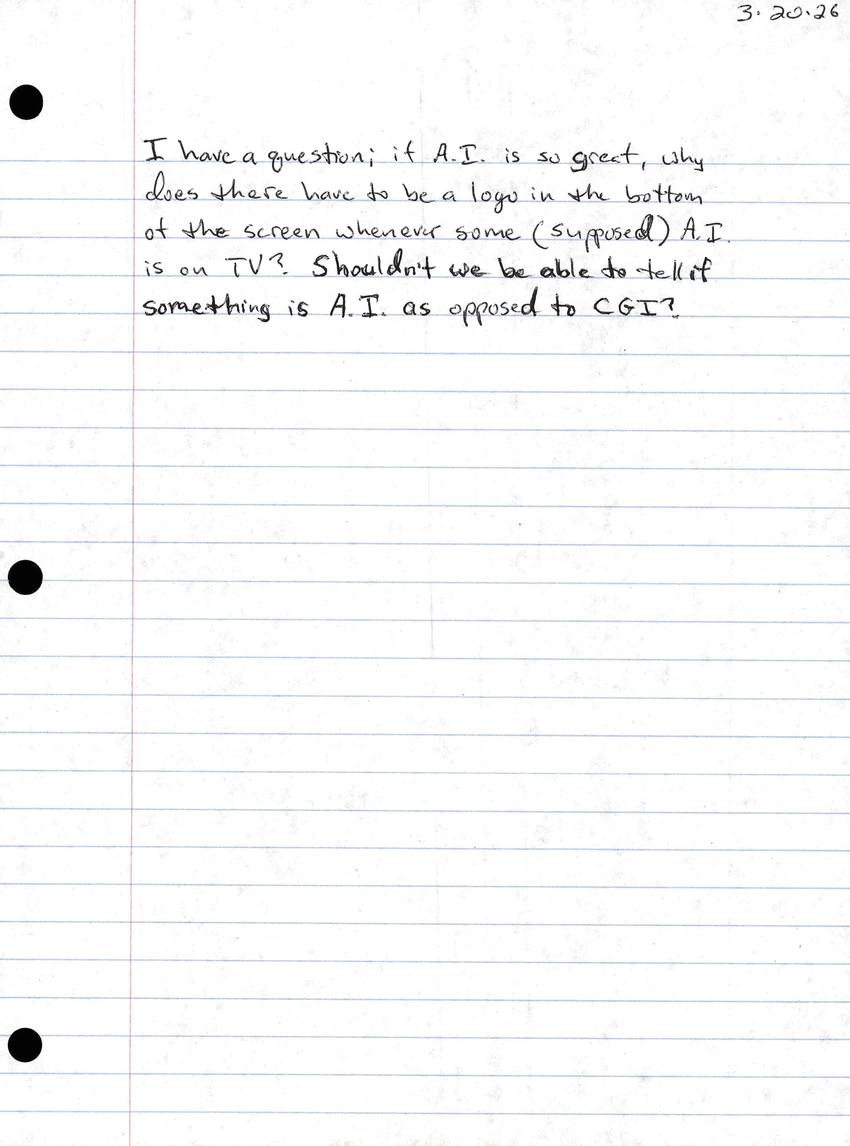 3.20.26
I have a question; if A.I. is so great, why
does there have to be a logo in the bottom
of the screen whenever some (supposed) A.I.
is on TV? Shouldn't we be able to tell if
something is A.I. as opposed to CGI?